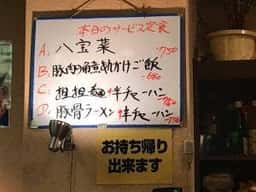 本日のサービス定食
A. 八宝菜 750
B. 豚肉角煮あんかけご飯
C. 担担麺+半チャーハン
D. 豚骨ラーメン+半チャーハン
お持ち帰り
出来ます